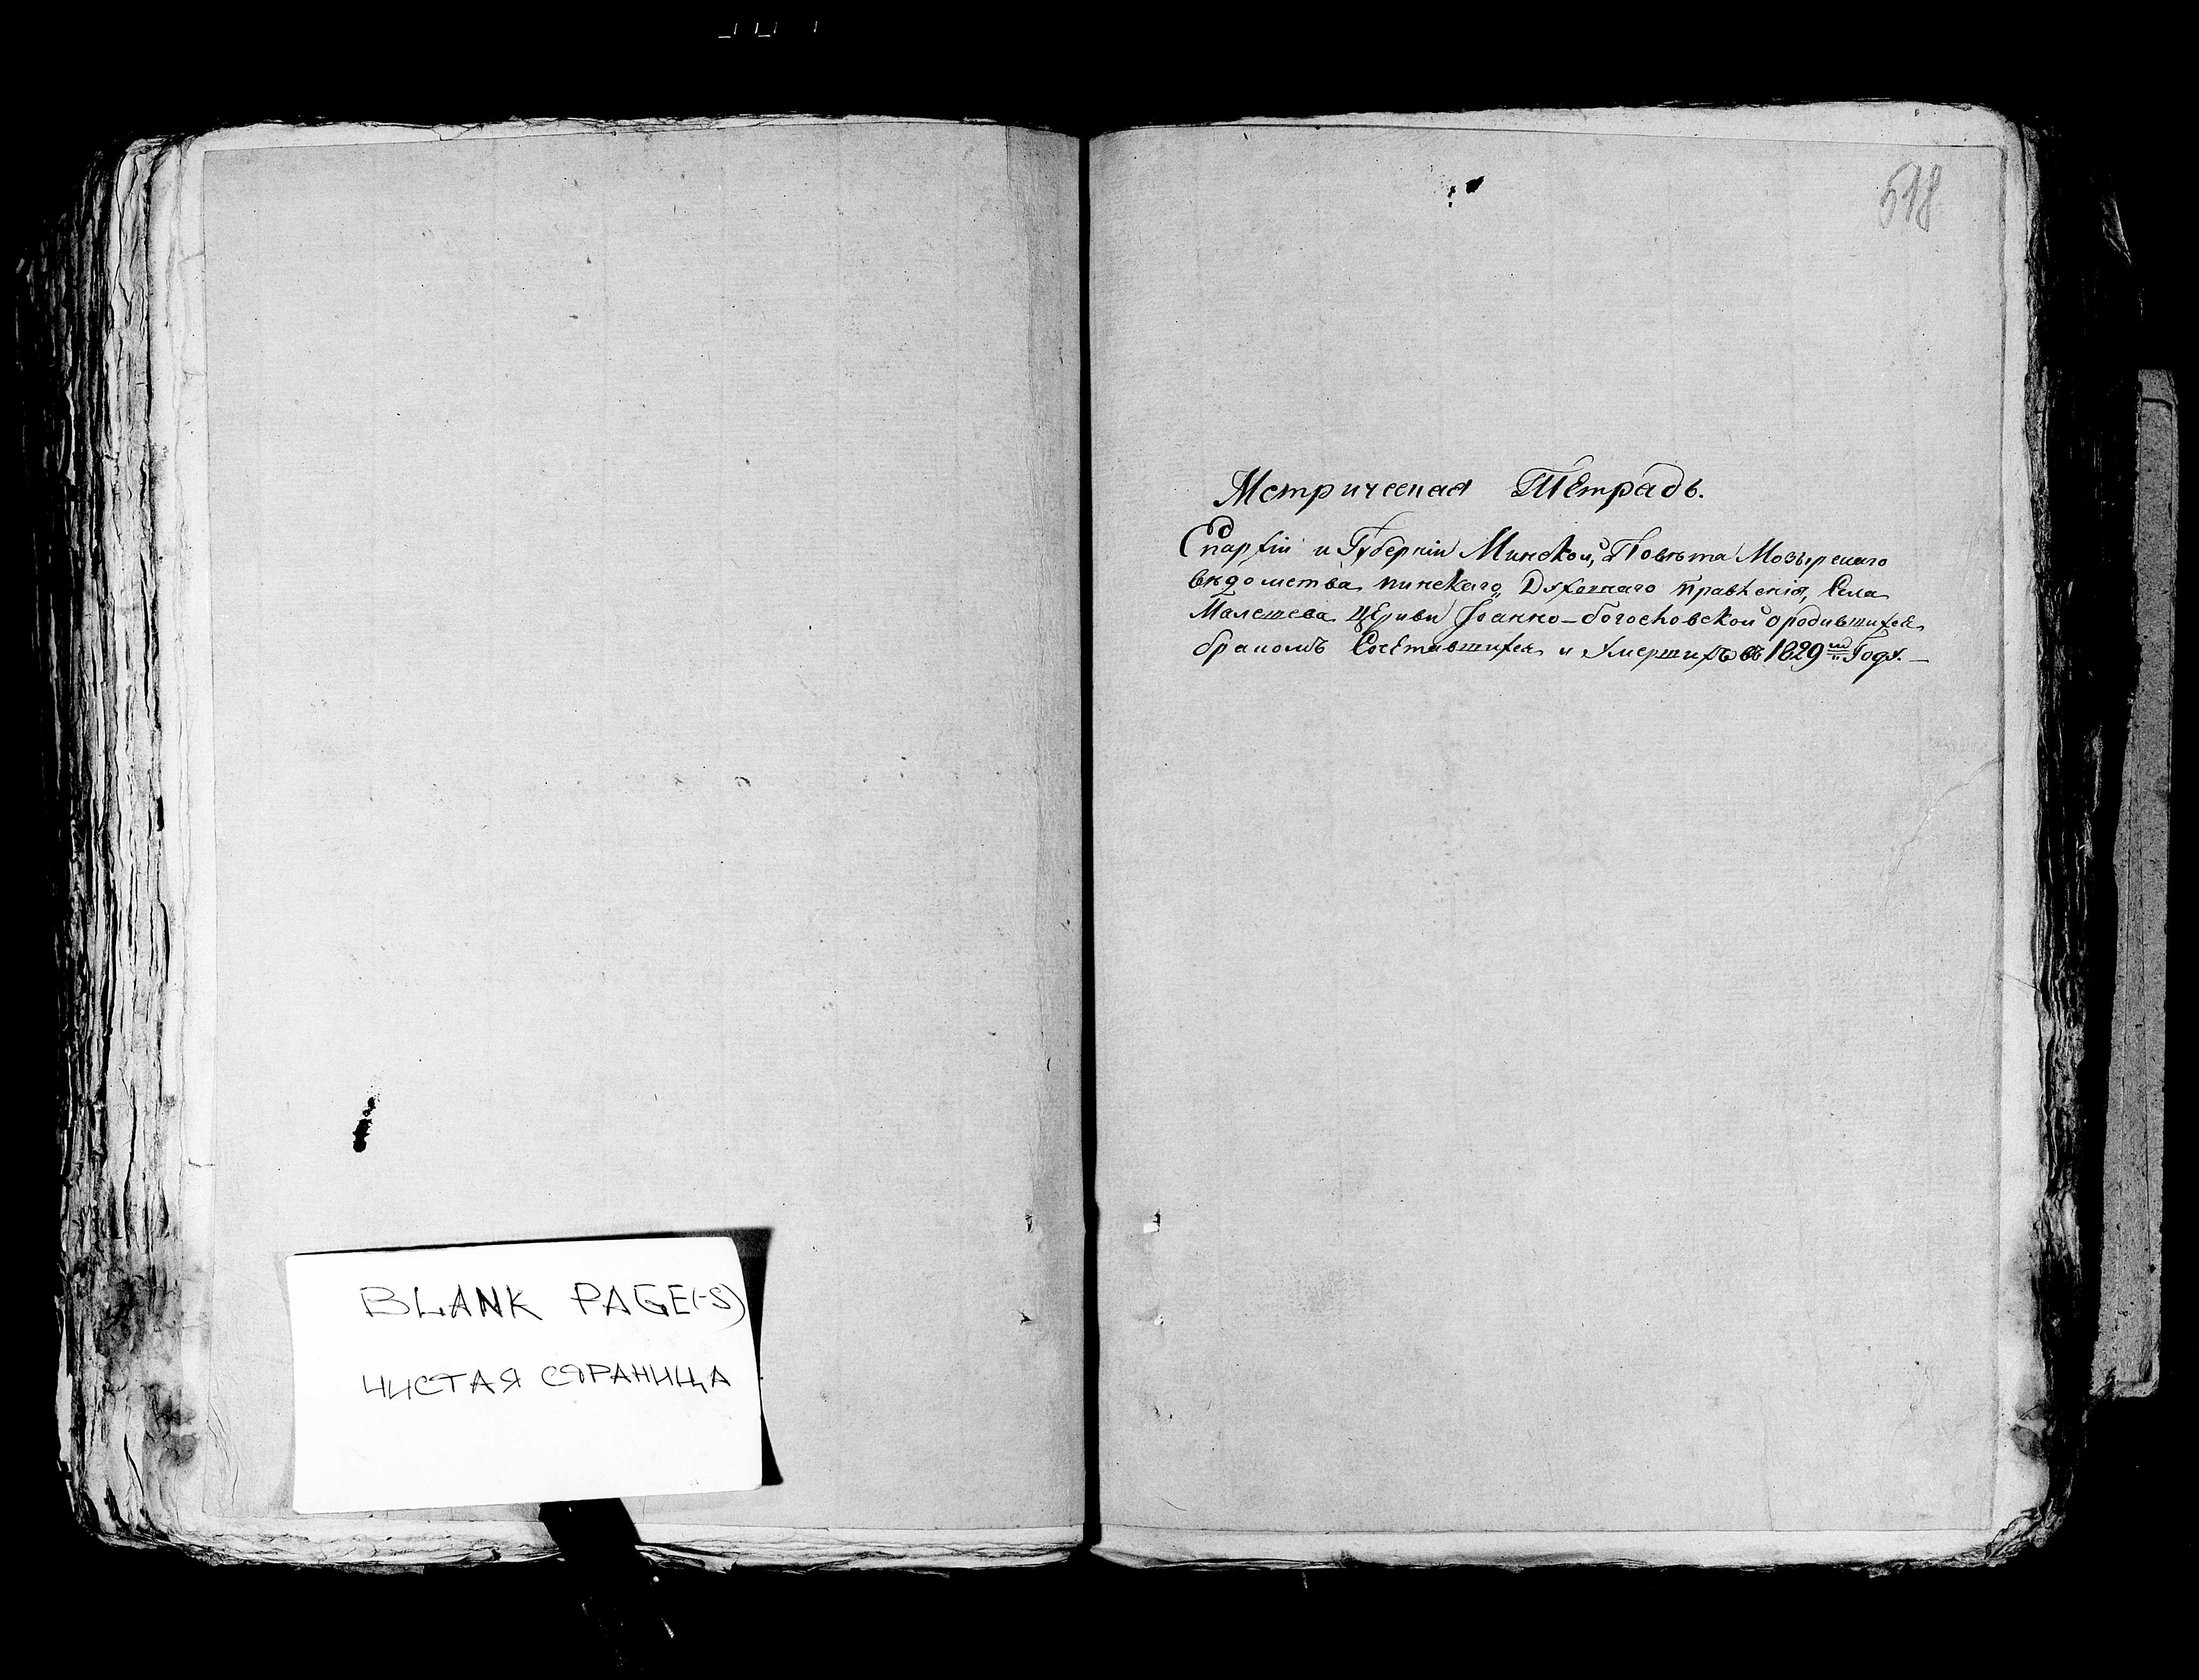 518
Метрическая Тетрадь.
Епархіи и Губерніи Минской, Повѣта Мозырскаго
вѣдомства пинскаго Духовнаго правленія, Села
Малешева Церкви Іоанно-богословской ородившихся
бракомъ Сочетавшихся и умершихъ въ 1829мъ Году.—
BLANK PAGE(-S)
ЧИСТАЯ СТРАНИЦА